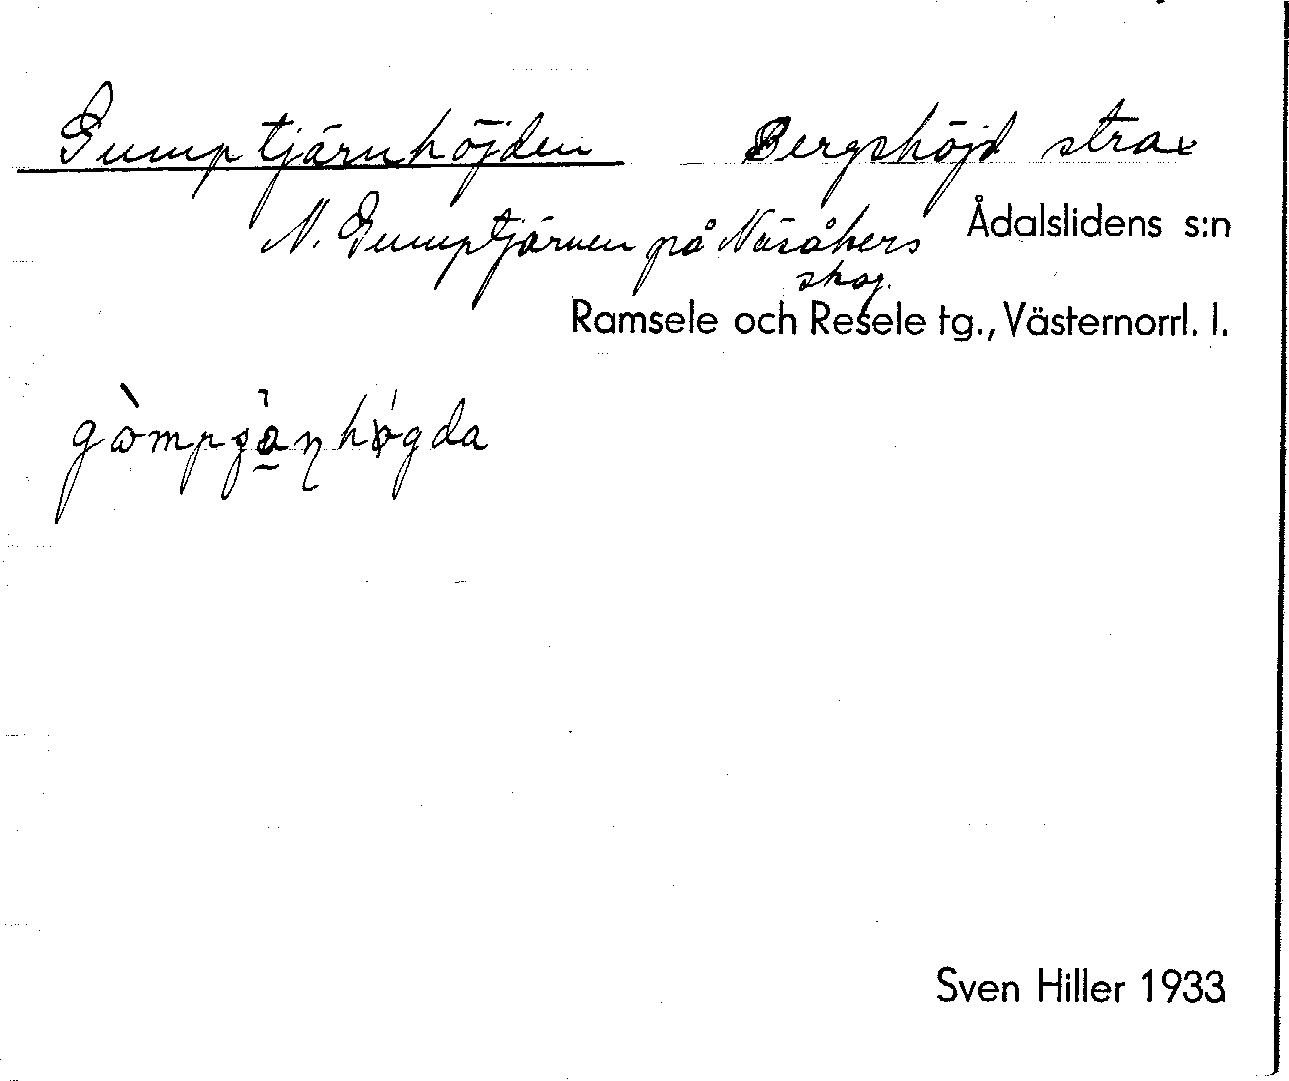 Gumptjärnhöjden Bergshöjd strax
N. Gumptjärnen på Näsåkers
skog.
Ådalslidens s:n
Ramsele och Resele tg., Västernorrl. l.
Sven Hiller 1933